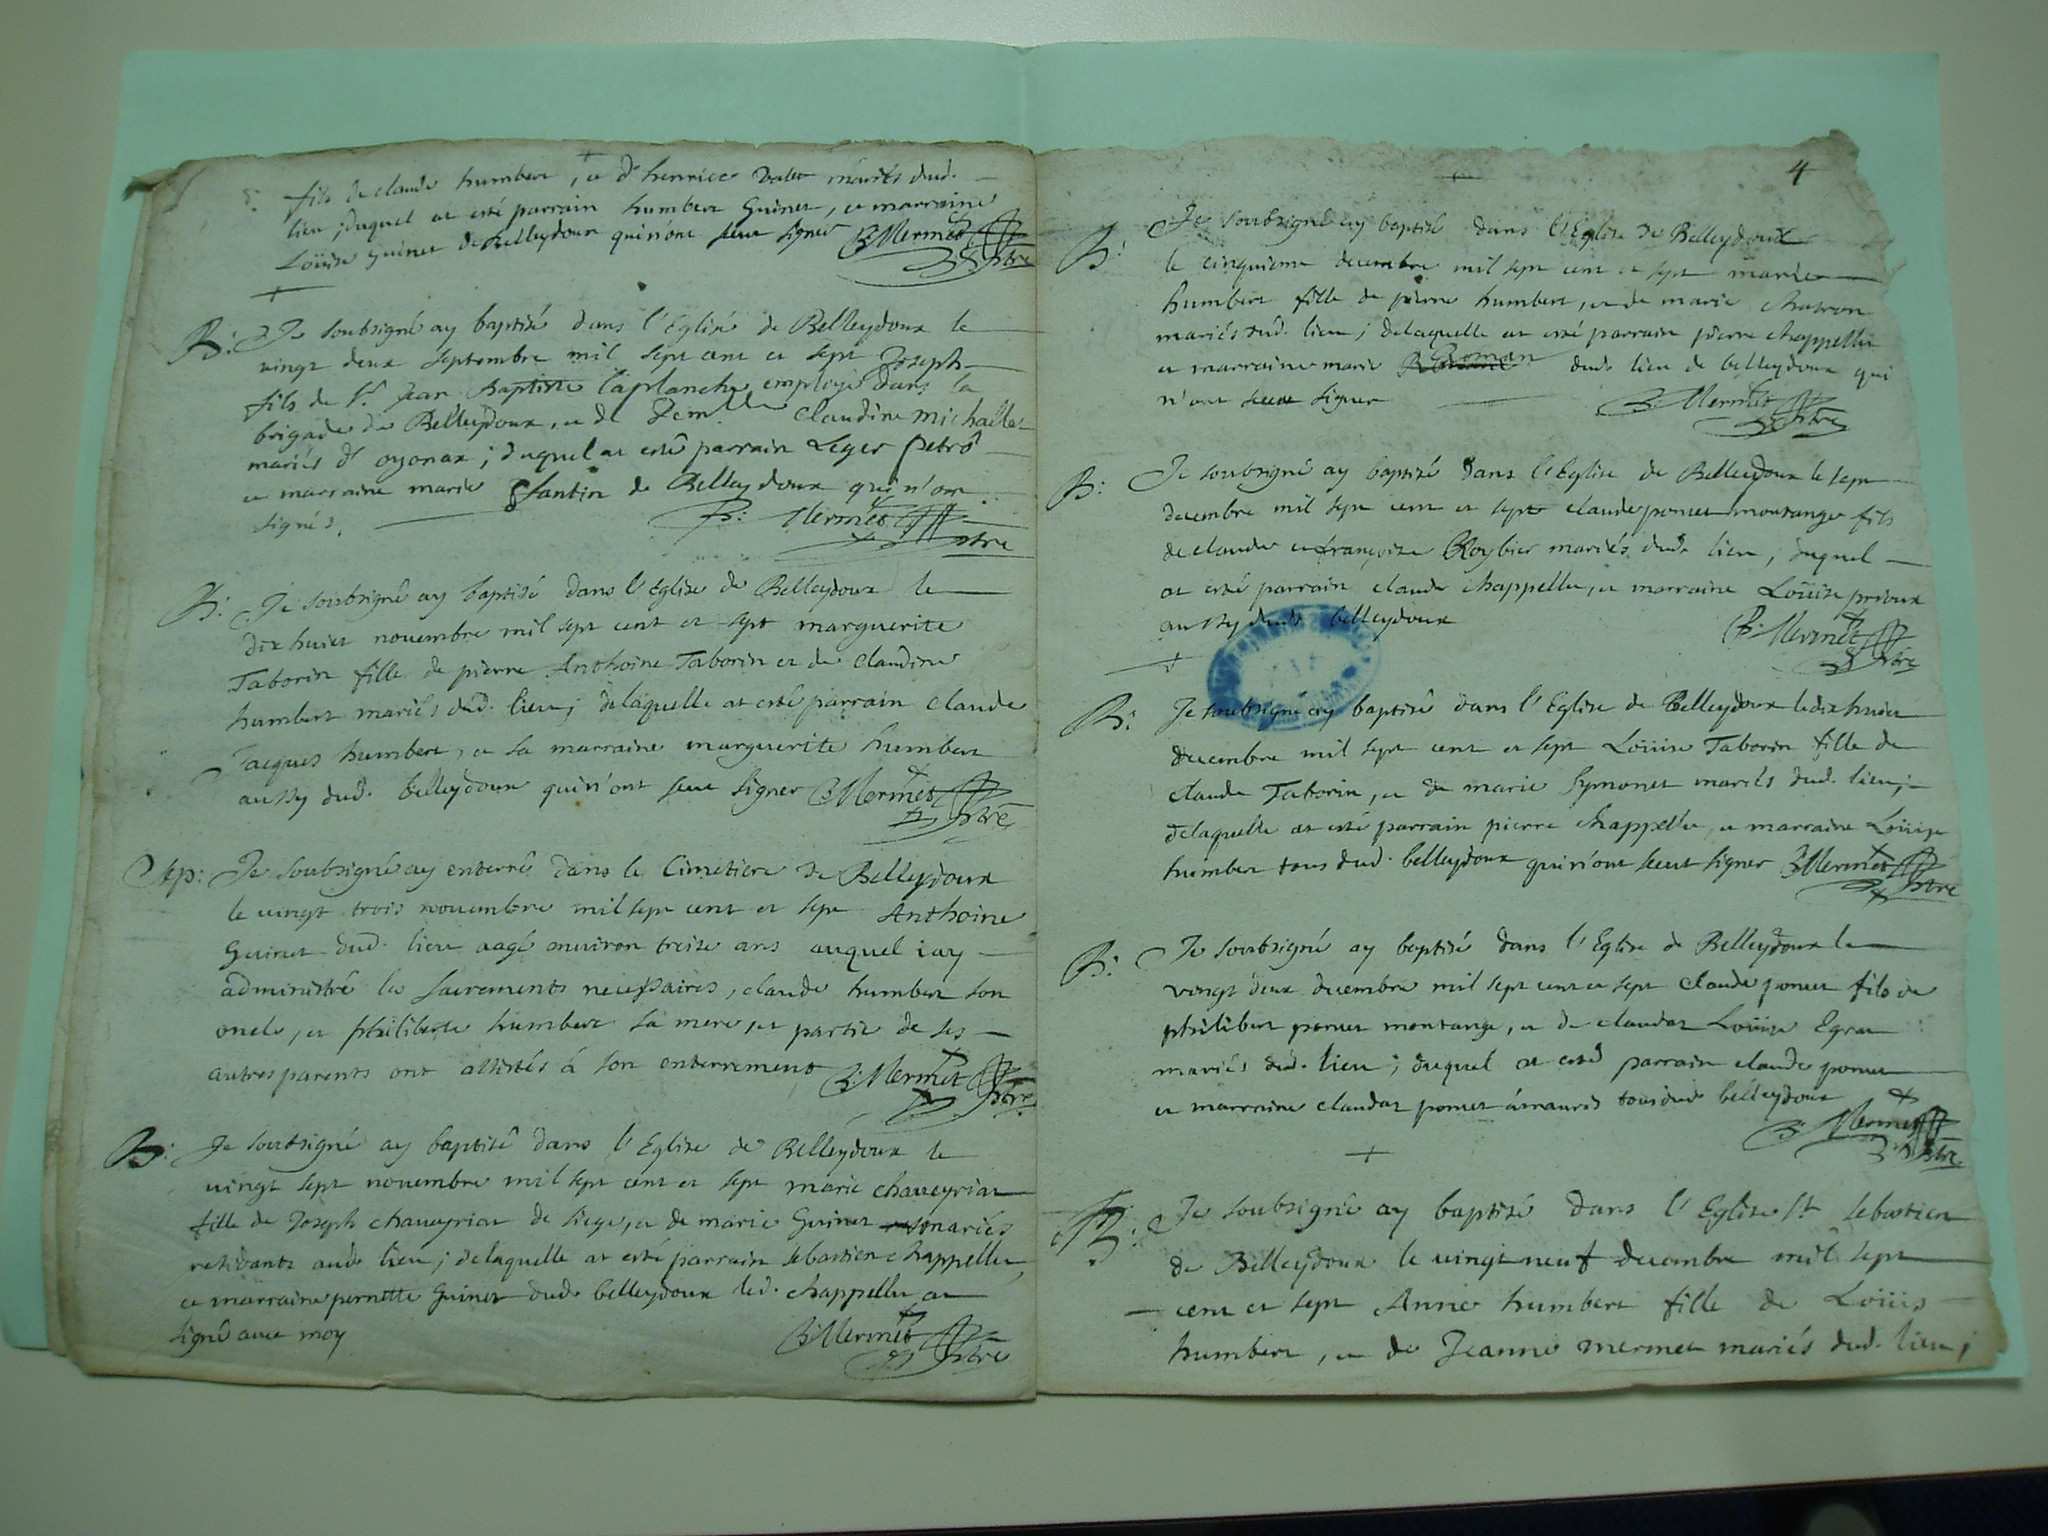 fils de claude humbert, et d'henrice mariés dud.
lieu; duquel at esté parrain humbert Guinet, et marraine
Loüise Guinet de belleydoux quin'ont sceut signer B: Mermet
pbtre
B: Je soubsigné ay baptisé dans l'Eglise de Belleydoux le
vingt deux septembre mil sept cent et sept Joseph
fils de Sr. Jean Baptiste laplanche employé dans la
brigade de Belleydoux, et de Dem.lle Claudine michallet
mariés d'oyonax; duquel at esté parrain Leger Petrô
et marraine marie de Belleydoux qui n'ont
signés. B: Mermet
pbtre
B: Je soubsigné ay baptisé dans l'Eglise de Belleydoux le
dix huict novembre mil sept cent et sept marguerite
Taborin fille de pierre Anthoine Taborin et de Claudine
humbert mariés dud. lieu; delaquelle at esté parrain Claude
Jacques humbert, et sa marraine marguerite humbert
aussy dud. belleydoux quin'ont sceut signer B: Mermet
pbtre
Sep: Je soubsigné ay enterré dans le Cimetiere de Belleydoux
le vingt trois novembre mil sept cent et sept Anthoine
Guinet dud. lieu aagé environ treize ans auquel iay
administré les sacrements necessaires, claude humbert son
oncle, et philiberte humbert sa mere, et partie de ses
autres parents ont assistés á son enterrement B: Mermet
pbtre
B: Je soubsigné ay baptisé dans l'Eglise de Belleydoux le
vingt sept novembre mil sept cent et sept marie chaveyriat
fille de Joseph chaveyriat de siege, et de marie Guinet mariés
residants aud. lieu; delaquelle at esté parrain sebastien chappellu,
et marraine pernette Guinet dud. belleydoux led. chappellu at
signé avec moy B: Mermet
pbtre
4
B: Je soubsigné ay baptisé dans l'Eglise de Belleydoux
le cinquieme decembre mil sept cent et sept marie
humbert fille de pierre humbert, et de marie chavron
mariés dud. lieu; delaquelle at esté parrain pierre chappellu
et marraine marie Roman dud. lieu de belleydoux qui
n'ont sceut signer B: Mermet
pbtre
B: Je soubsigné ay baptisé dans l'Eglise de Belleydoux le sept
decembre mil sept cent et sept claude poncet montange fils
de claude et françoise Roybier mariés dud. lieu, duquel
at esté parrain claude chappellu, et marraine Loüise prioux
aussy dud. belleydoux B: Mermet
pbtre
B: Je soubsigné ay baptisé dans l'Eglise de Belleydoux le dix huict
decembre mil sept cent et sept Loüise Taborin fille de
claude Taborin, et de marie Symonet mariés dud. lieu;
delaquelle at esté parrain pierre chappellu, et marraine Loüise
humbert tous dud. belleydoux quin'ont sceut signer B: Mermet
pbtre
B: Je soubsigné ay baptisé dans l'Eglise de Belleydoux le
vingt deux decembre mil sept cent et sept claude poncet fils de
philibert poncet montange, et de claudaz Loüise Egraz
mariés dud. lieu; duquel at esté parrain claude poncet
et marraine claudaz poncet tous dud. belleydoux
B: Mermet
pbtre
B: Je soubsigné ay baptisé dans l'Eglise St. sebastien
de Belleydoux le vingt neuf decembre mil sept
cent et sept Anne humbert fille de Loüis
humbert, et de Jeanne mermet mariés dud. lieu;